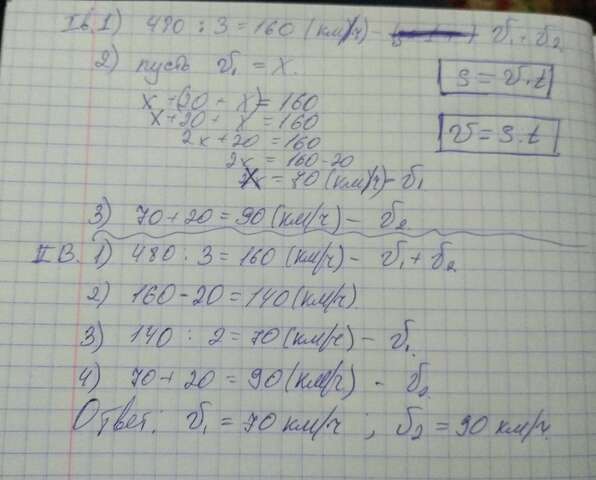 Iв. 1) 480 : 3 = 160 (км/ч) - V₁ + V₂
2) пусть V₁ = x.
S = V · t
x + (20 + x) = 160
x + 20 + x = 160
V = S · t
2x + 20 = 160
2x = 160 - 20
x = 70 (км/ч) - V₁
3) 70 + 20 = 90 (км/ч) - V₂
II В. 1) 480 : 3 = 160 (км/ч) - V₁ + V₂
2) 160 - 20 = 140 (км/ч)
3) 140 : 2 = 70 (км/ч) - V₁
4) 70 + 20 = 90 (км/ч) - V₂
Ответ: V₁ = 70 км/ч ; V₂ = 90 км/ч.